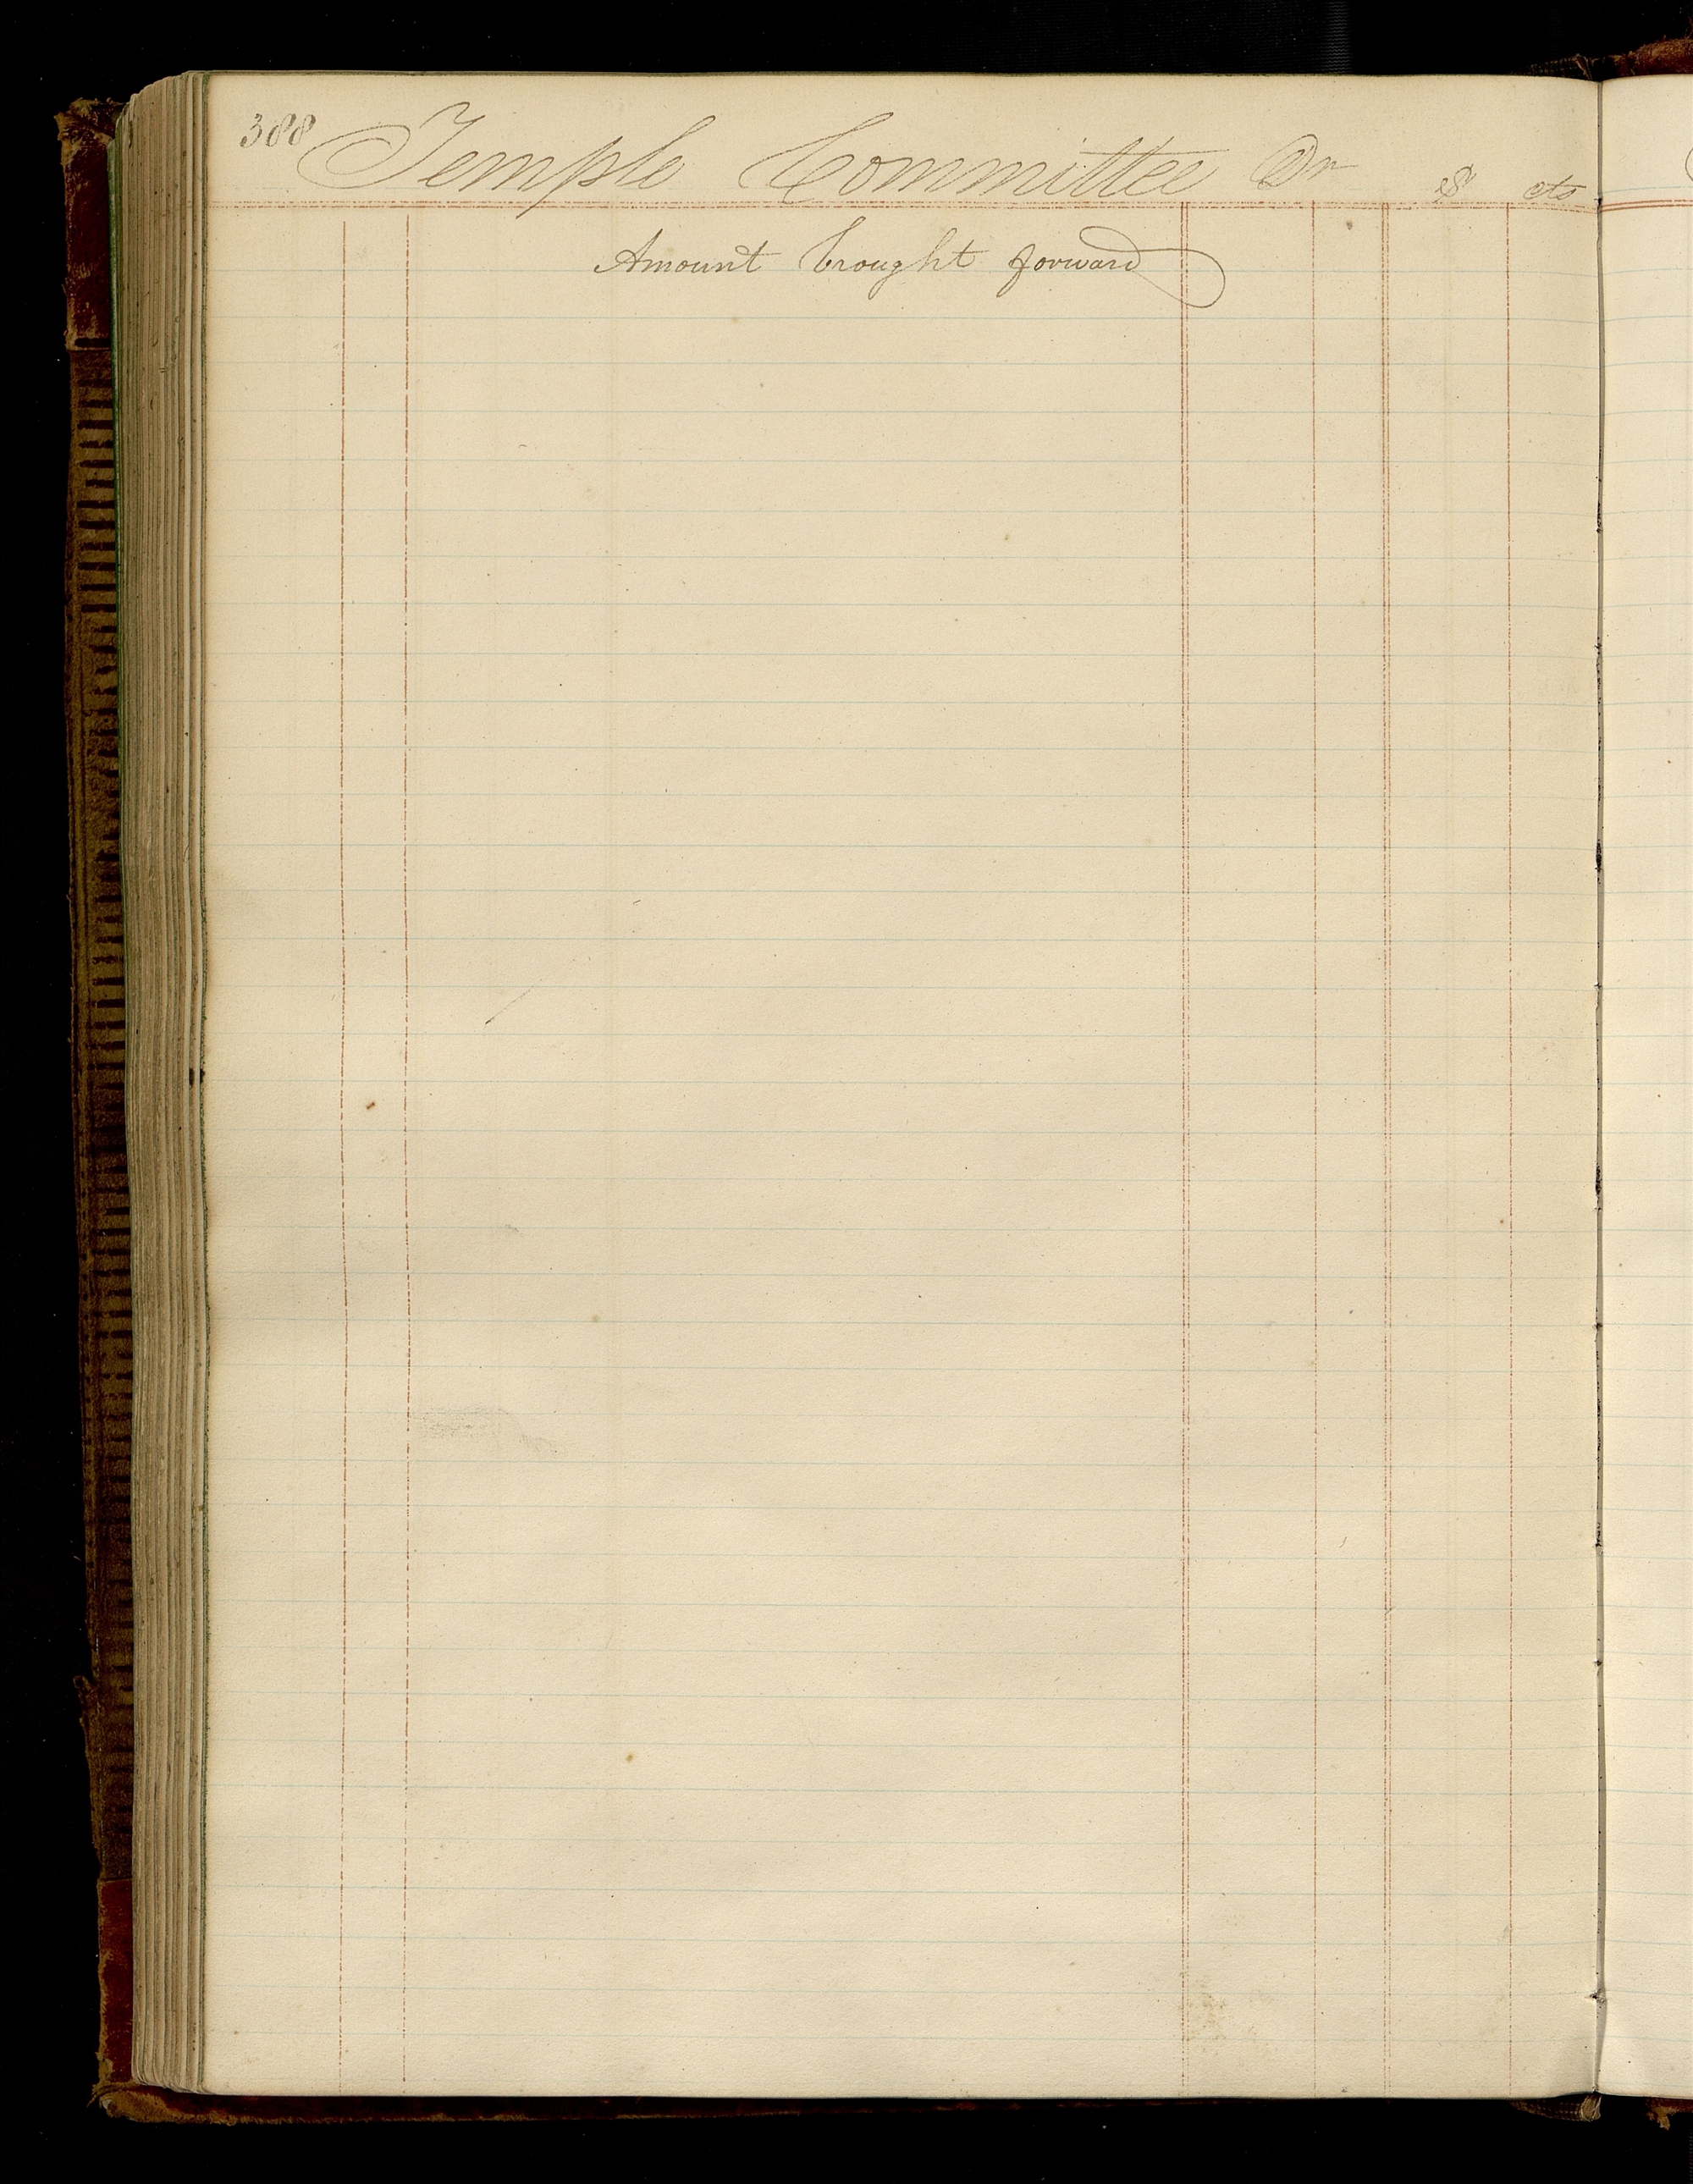 388 Temple Committee Dr $ cts
Amount brought forward